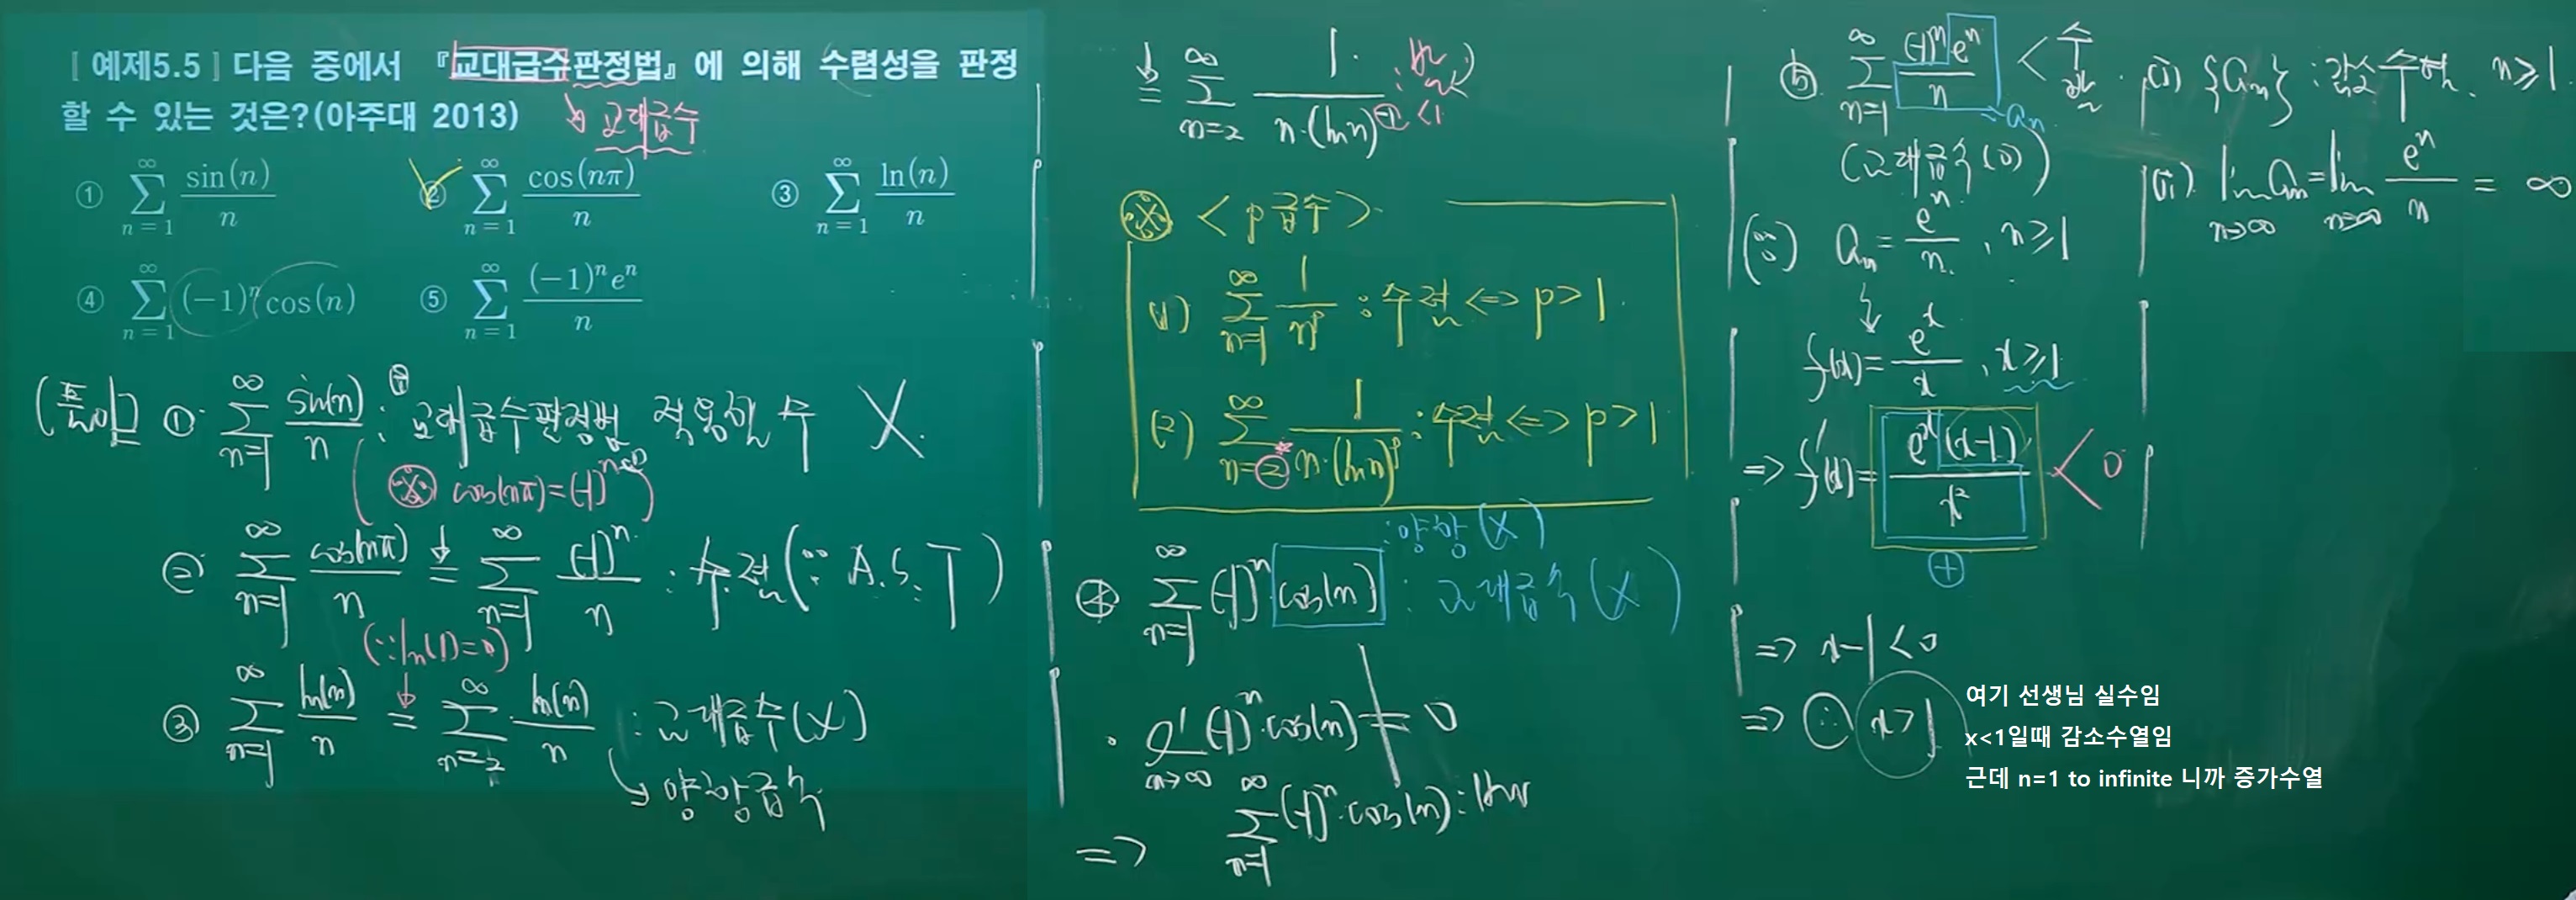 [ 예제5.5 ] 다음 중에서 『교대급수판정법』에 의해 수렴성을 판정
할 수 있는 것은?(아주대 2013)
↘ 교대급수
① \sum_{n=1}^{∞} \frac{sin(n)}{n} ② \sum_{n=1}^{∞} \frac{cos(nπ)}{n} ③ \sum_{n=1}^{∞} \frac{ln(n)}{n}
④ \sum_{n=1}^{∞} (-1)^n cos(n) ⑤ \sum_{n=1}^{∞} \frac{(-1)^n e^n}{n}
(풀이) ① \sum_{n=1}^{∞} \frac{sin(n)}{n} : 교대급수판정법 적용할 수 X.
(※ cos(nπ)=(-1)^n)
② \sum_{n=1}^{∞} \frac{cos(nπ)}{n} = \sum_{n=1}^{∞} \frac{(-1)^n}{n} : 수렴(∵ A.S.T)
(∵ ln(1)=0)
③ \sum_{n=1}^{∞} \frac{ln(n)}{n} = \sum_{n=2}^{∞} \frac{ln(n)}{n} : 교대급수(X)
↘ 양항급수
= \sum_{n=2}^{∞} \frac{1}{n·(ln n)^{-1}} <1
※ <p급수>
(1) \sum_{n=1}^{∞} \frac{1}{n^p} : 수렴 <=> p>1.
(2) \sum_{n=2}^{∞} \frac{1}{n·(ln n)^p} : 수렴 <=> p>1
: 양항(X)
④ \sum_{n=1}^{∞} (-1)^n cos(n) : 교대급수(X)
· \lim_{n→∞} (-1)^n·cos(n) ≠ 0
=> \sum_{n=1}^{∞} (-1)^n·cos(n) : div
⑤ \sum_{n=1}^{∞} \frac{(-1)^n e^n}{n} < 수 발
a_n
(교대급수(0))
(∵) a_n = \frac{e^n}{n}, n≥1
↓
f(x) = \frac{e^x}{x}, x≥1
=> f'(x) = \frac{e^x(x-1)}{x^2} < 0
⊕
=> x-1<0
=> ∴ x>1
여기 선생님 실수임
x<1일때 감소수열임
근데 n=1 to infinite 니까 증가수열
(i) {a_n} : 감소수열. n≥1
(ii) \lim_{n→∞} a_n = \lim_{n→∞} \frac{e^n}{n} = ∞